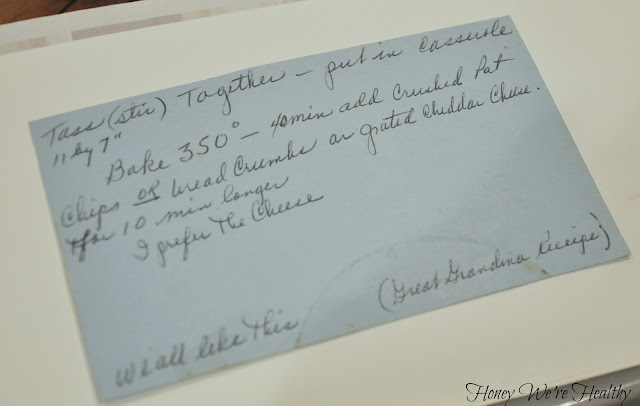 Tass (stir) Together - put in Casserole
11 by 7"
Bake 350° - 40min add Crushed Pat
Chips or bread Crumbs or grated Cheddar Cheese.
for 10 min longer
I prefer The Cheese
We all like This
(Great Grandma Receipe)
Honey We're Healthy